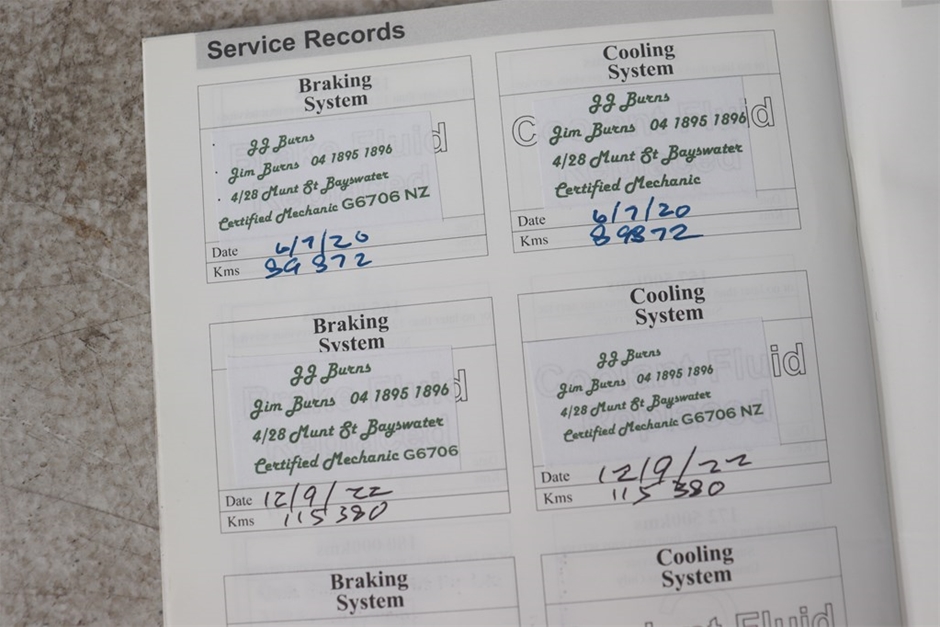 Service Records
Braking
System
JJ Burns
Jim Burns 04 1895 1896
4/28 Munt St Bayswater
Certified Mechanic G6706 NZ
Date 6/7/20
Kms 89 872
Cooling
System
JJ Burns
Jim Burns 04 1895 1896
4/28 Munt St Bayswater
Certified Mechanic
Date 6/7/20
Kms 89872
Braking
System
JJ Burns
Jim Burns 04 1895 1896
4/28 Munt St Bayswater
Certified Mechanic G6706
Date 12/9/22
Kms 115 380
Cooling
System
JJ Burns
Jim Burns 04 1895 1896
4/28 Munt St Bayswater
Certified Mechanic G6706 NZ
Date 12/9/22
Kms 115 380
Braking
System
Cooling
System
Fluid